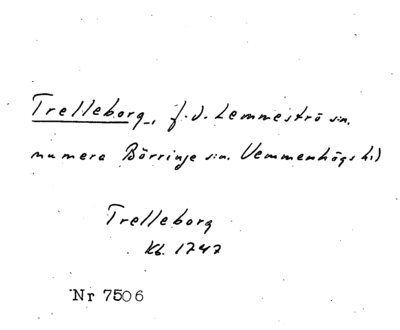 Trelleborg, f.d. Lemmeströ sn.
numera Börringe sn. Vemmenhögs hd
Trelleborg
Kb. 1747
Nr 7506